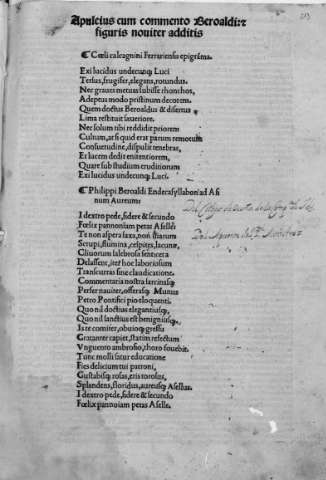 213
Apuleius cum commento Beroaldi: &
figuris noviter additis
¶ Cœlii calcagnini Ferrariensis epigrama.
Exi lucidus undecunq; Luci
Tersus, frugifer, elegans, rotundus.
Nec graues metuas subisse rhonchos,
Adeptus modo pristinum decorem.
Quem doctus Beroaldus & disertus
Lima restituit seueriore.
Nec solum tibi reddidit priorem
Cultum, at si quid erat parum remotum
Consuetudine, dispulit tenebras,
Et lacem dedit enitentiorem,
Quare sub studiium eruditionum
Exi lucidus undecunq; Luci.
¶ Philippi Beroaldi Endecasyllabon ad Asi
num Aureum:
I dextro pede, sidere & secundo
Fœlix pannoniam petas Aselle:
Te non aspera saxa, non fluuiorum
Scrupi, flumina, cespites, lacunæ,
Cliuorum salebrosa
Delassent, iter hoc laboriosum
Transcurras sine claudicatione.
Commentaria nostra
Perfer nauiter, offerasq; Munus
Petro Pontifici pio eloquenti.
Quo nil doctius elegantiusq;
Quo nil sanctius est benigniusq;
Is te comiter, obuioq; gressu
Gratanter capiet, statim refectam
Vnguento ambrosio, thoro fouebit.
Tunc molli satur educatione
Fies delicium tui patroni,
Gustabisq; rosas, eris torosus,
Splendens, floridus, aureusq; Asellus.
I dextro pede, sidere & secundo
Fœlix pannoniam petas Aselle.